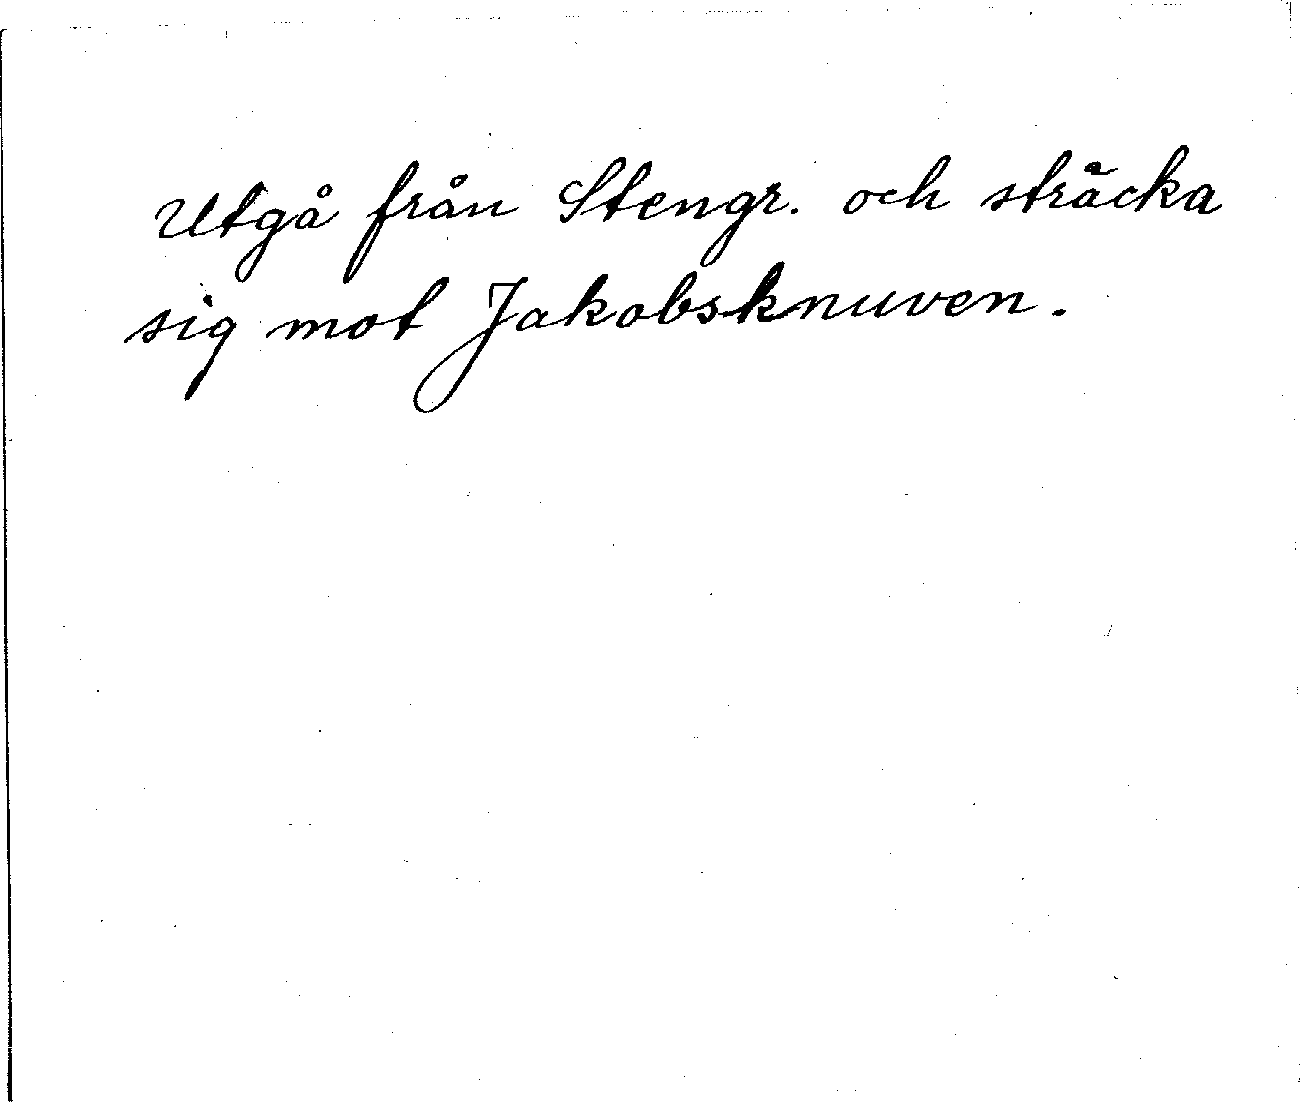 Utgå från Stengr. och sträcka
sig mot Jakobsknuven.